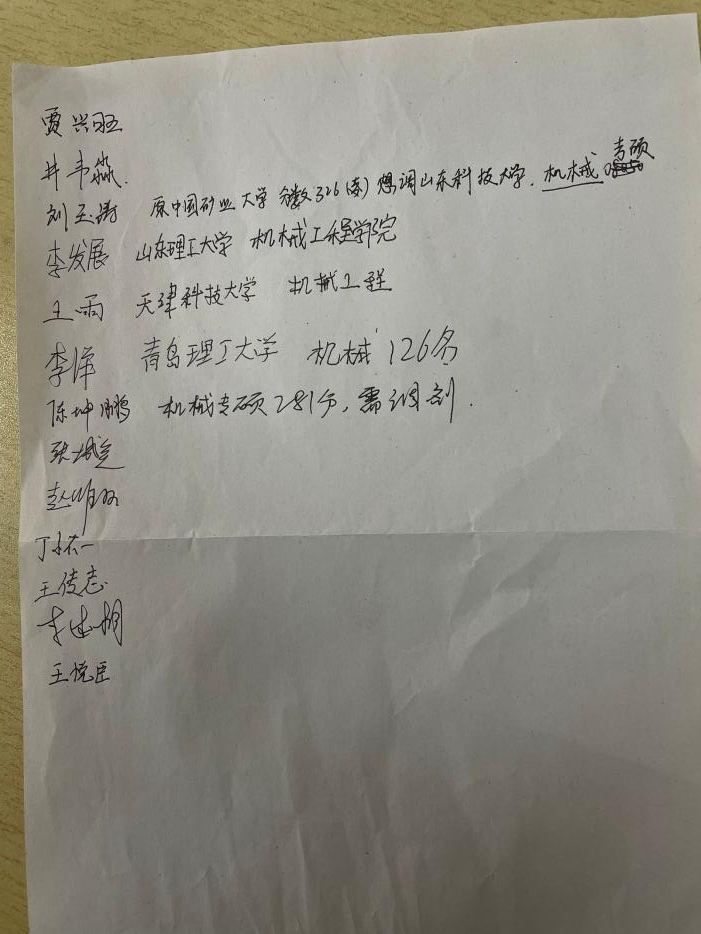 贾兴旺
井韦淼.
刘玉 原中国矿业大学 分数326 想调山东科技大学. 机械 专硕
李发展 山东理工大学 机械工程学院
王雨 天津科技大学 机械工程
李泽 青岛理工大学 机械 126名
陈坤鹏 机械专硕281分, 需调剂.
张
赵
丁一
王传志
李建
王悦臣